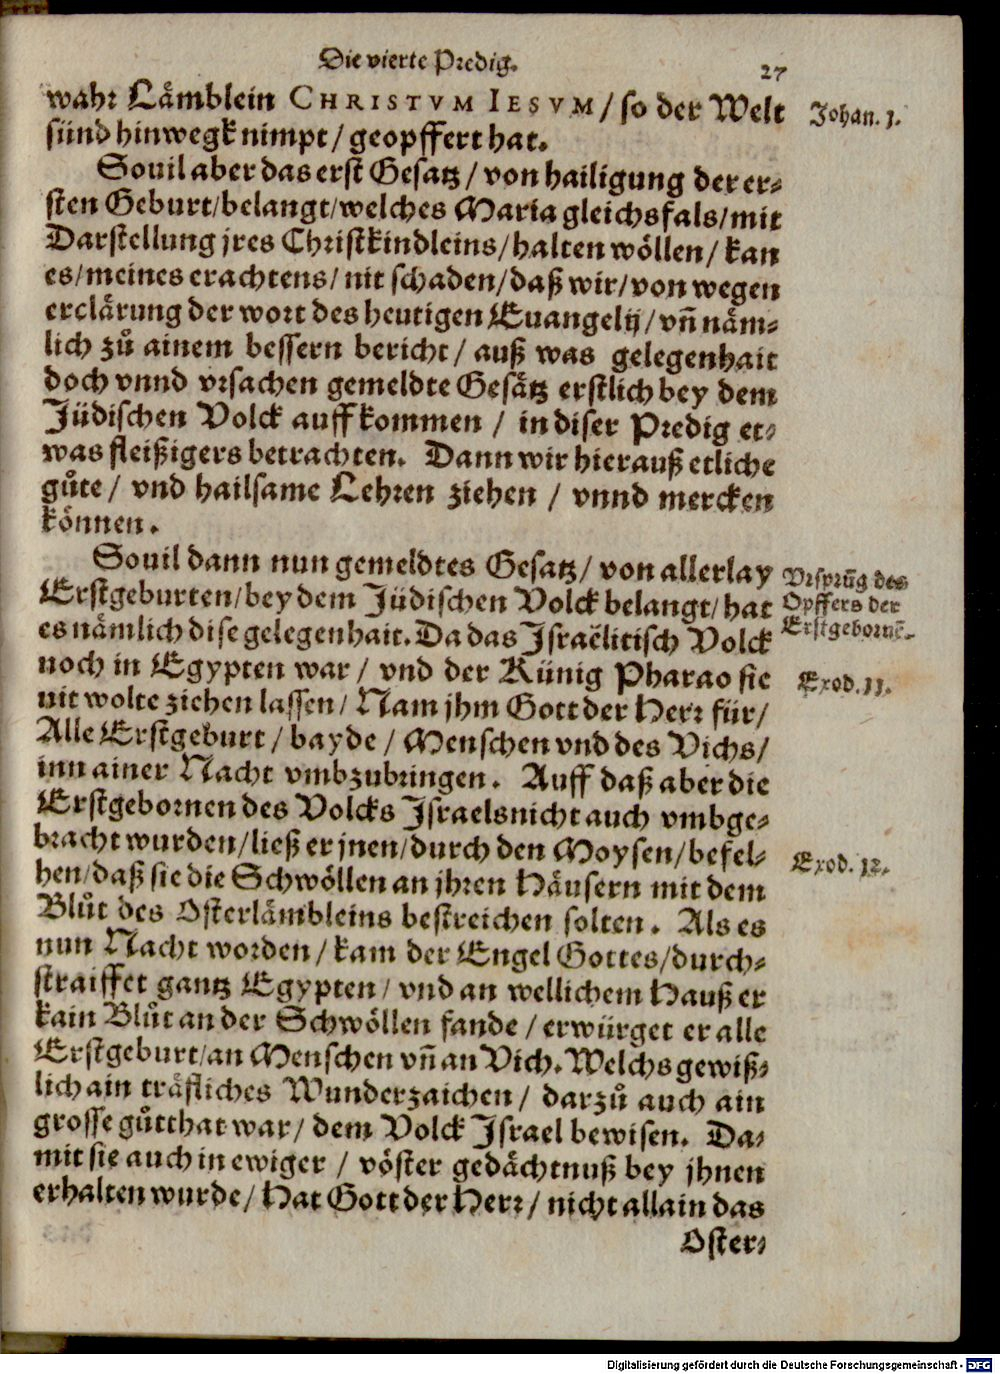 Die vierte Predig.
27
wahr Lämblein CHRISTVM IESVM / so der Welt
sünd hinwegk nimpt / geopffert hat.
Johan. 1.
Souil aber das erst Gesatz / von hailigung der er-
sten Geburt/belangt/welches Maria gleichsfals/mit
Darstellung jres Christkindleins/halten wöllen/ kan
es/meines erachtens/ nit schaden/daß wir/von wegen
erclärung der wort des heutigen Euangelij/vñ näm-
lich zů ainem bessern bericht/ auß was gelegenhait
doch vnnd vrsachen gemeldte Gesätz erstlich bey dem
Jüdischen Volck auffkommen / in diser Predig et-
was fleißigers betrachten. Dann wir hierauß etliche
gůte / vnd hailsame Lehren ziehen / vnnd mercken
können.
Souil dann nun gemeldtes Gesatz/ von allerlay
Erstgeburten/bey dem Jüdischen Volck belangt/hat
es nämlich dise gelegenhait. Da das Israëlitisch Volck
noch in Egypten war / vnd der Künig Pharao sie
nit wolte ziehen lassen/ Nam jhm Gott der Herr für/
Alle Erstgeburt / bayde / Menschen vnd des Vichs/
inn ainer Nacht vmbzubringen. Auff daß aber die
Erstgebornen des Volcks Israels nicht auch vmbge-
bracht wurden/ließ er jnen/durch den Moysen/befel-
hen/daß sie die Schwöllen an jhren Häusern mit dem
Blůt des Osterlämbleins bestreichen solten. Als es
nun Nacht worden / kam der Engel Gottes/durch-
straiffet gantz Egypten / vnd an wellichem Hauß er
kain Blůt an der Schwöllen fande / erwürget er alle
Erstgeburt/an Menschen vñ an Vich. Welchs gewiß-
lich ain träfliches Wunderzaichen / darzů auch ain
grosse gůtthat war/ dem Volck Israel bewisen. Da-
mit sie auch in ewiger / vöster gedächtnuß bey jhnen
erhalten wurde/ Hat Gott der Herr/ nicht allain das
Oster-
Vrsprũg des
Opffers der
Erstgebornẽ.
Exod. 11.
Exod. 12.
Digitalisierung gefördert durch die Deutsche Forschungsgemeinschaft - DFG